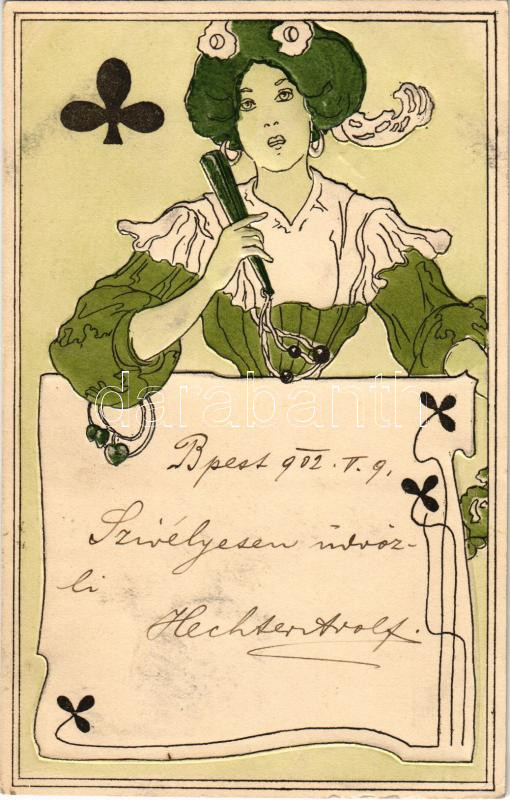 darabanth
Bpest 902. V. 9.
Szivélyesen üdvöz-
li
Hechter Arolf.